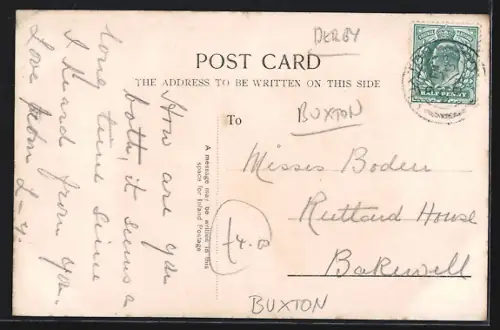 DERBY
POST CARD
THE ADDRESS TO BE WRITTEN ON THIS SIDE
HALF PENNY
To
BUXTON
How are you
both, it seems a
long time since
I heard from you.
Love from L-y.
A message may be written in this
space for Inland Postage
Misses Boden
Rutland House
Bakewell
BUXTON